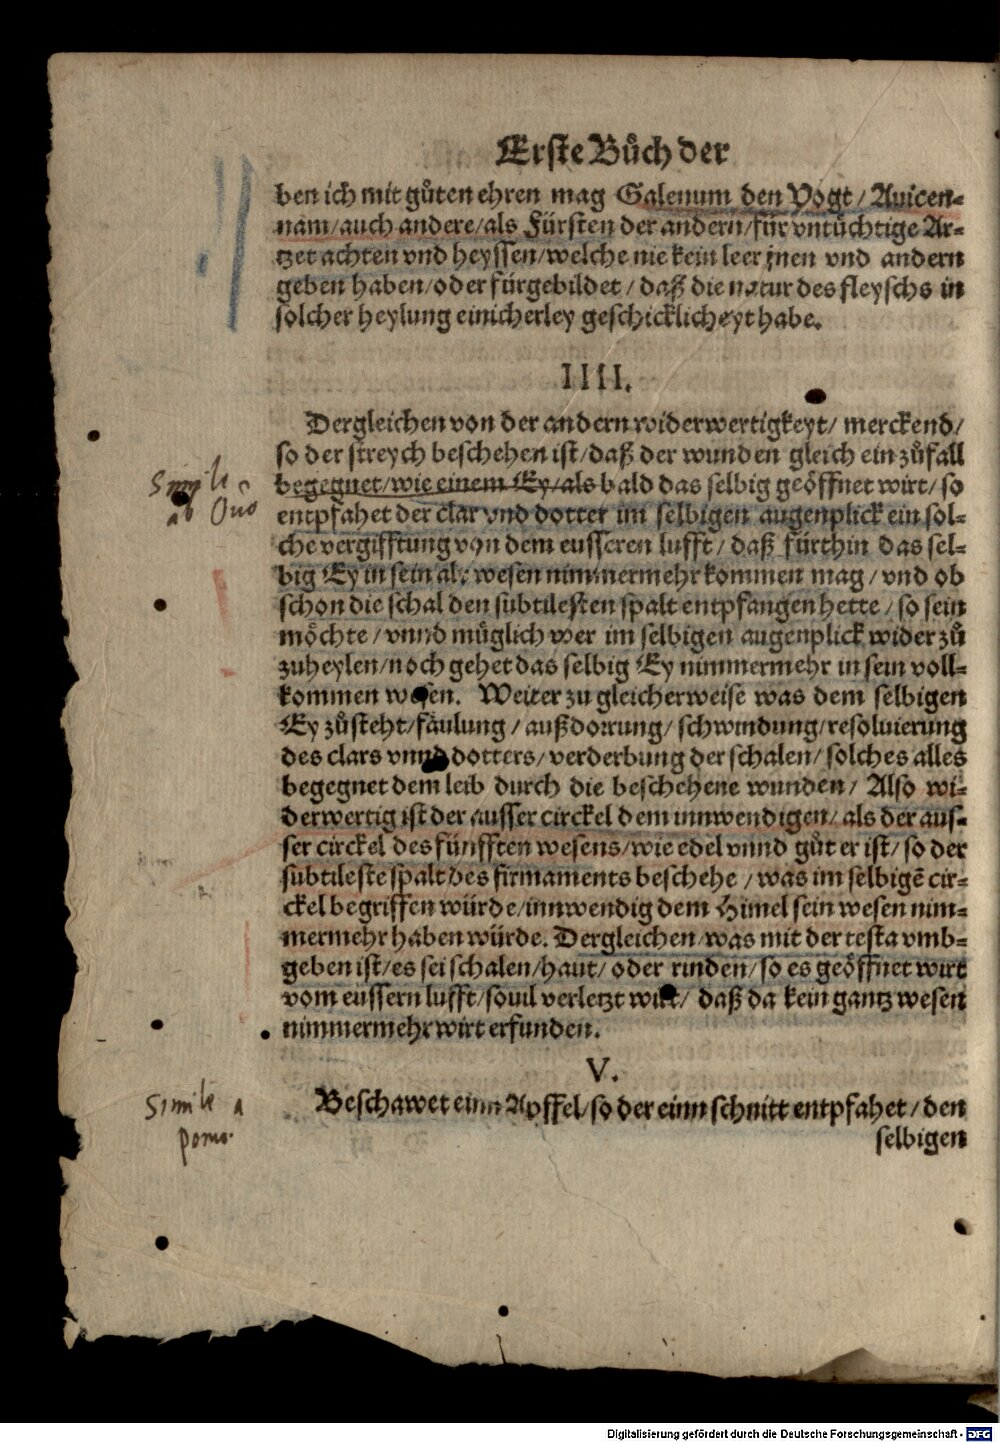 Erste Bůch der
ben ich mit gůten ehren mag Galenum den Vogt / Auicen-
nam/auch andere/als Fürsten der andern/für vntüchtige Ar-
tzet achten vnd heyssen/welche nie kein leer jnen vnd andern
geben haben/oder fürgebildet / daß die natur des fleyschs in
solcher heylung einicherley geschicklicheyt habe.
IIII.
Dergleichen von der andern widerwertigkeyt/ merckend/
so der streych beschehen ist/daß der wunden gleich ein zůfall
Simile
ab Ouo
begegnet/wie einem Ey/als bald das selbig geöffnet wirt/ so
entpfahet der clar vnd dotter im selbigen augenplick ein sol-
che vergifftung von dem eusseren lufft / daß fürthin das sel-
big Ey in sein alt wesen nimmermehr kommen mag / vnd ob
schon die schal den subtilesten spalt entpfangen hette / so sein
möchte / vnnd müglich wer im selbigen augenplick wider zů
zuheylen/noch gehet das selbig Ey nimmermehr in sein voll-
kommen wesen. Weiter zu gleicherweise was dem selbigen
Ey zůsteht/fäulung / außdorrung/ schwindung/resoluierung
des clars vnnd dotters/ verderbung der schalen/ solches alles
begegnet dem leib durch die beschehene wunden/ Also wi-
derwertig ist der ausser circkel dem innwendigen/ als der aus-
ser circkel des fünfften wesens/wie edel vnnd gůt er ist/ so der
subtileste spalt des firmaments beschehe / was im selbigē cir-
ckel begriffen würde/innwendig dem Himel sein wesen nim-
mermehr haben würde. Dergleichen/was mit der testa vmb-
geben ist/es sei schalen/haut/ oder rinden/so es geöffnet wirt
vom eussern lufft/souil verletzt wirt/ daß da kein gantz wesen
nimmermehr wirt erfunden.
V.
Simile a
pomo.
Beschawet einn Apffel/so der einn schnitt entpfahet / den
selbigen
Digitalisierung gefördert durch die Deutsche Forschungsgemeinschaft - DFG